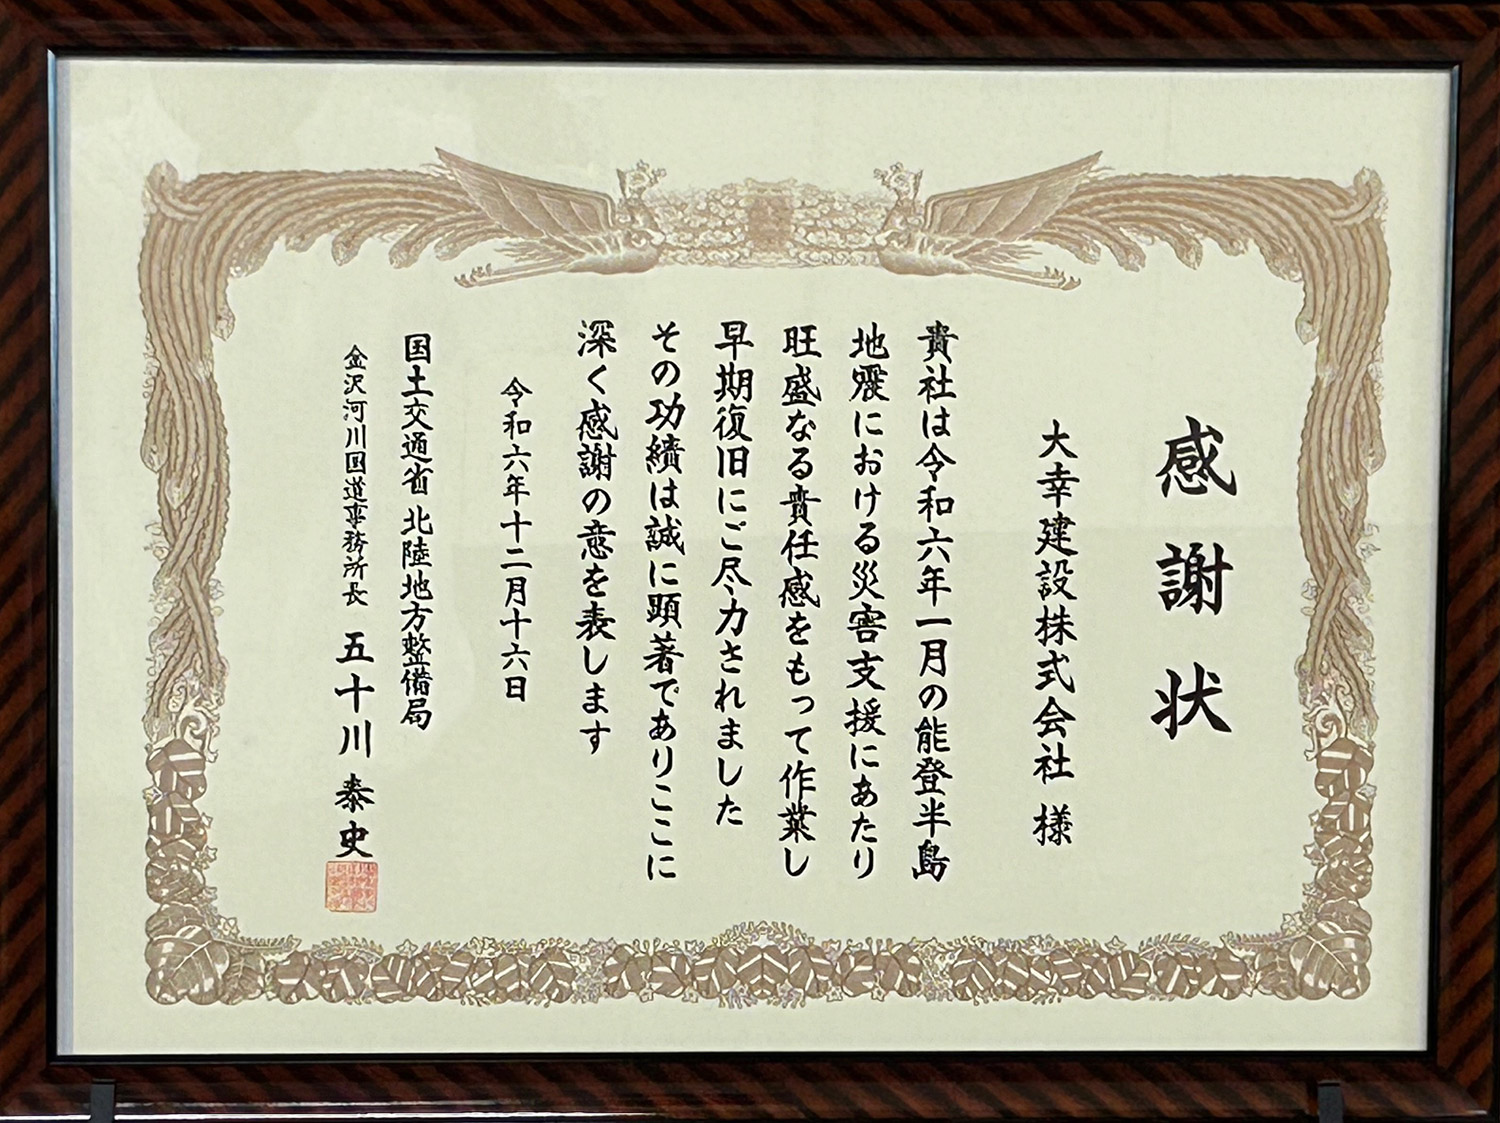 感謝状
大幸建設株式会社 様
貴社は令和六年一月の能登半島
地震における災害支援にあたり
旺盛なる責任感をもって作業し
早期復旧にご尽力されました
その功績は誠に顕著でありここに
深く感謝の意を表します
令和六年十二月十六日
国土交通省 北陸地方整備局
金沢河川国道事務所長 五十川 泰史